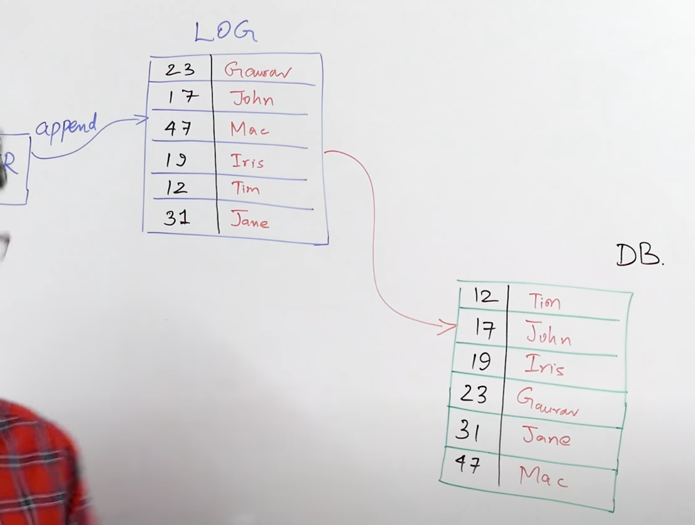 LOG
append
R
23 Gaurav
17 John
47 Mac
19 Iris
12 Tim
31 Jane
DB.
12 Tim
17 John
19 Iris
23 Gaurav
31 Jane
47 Mac